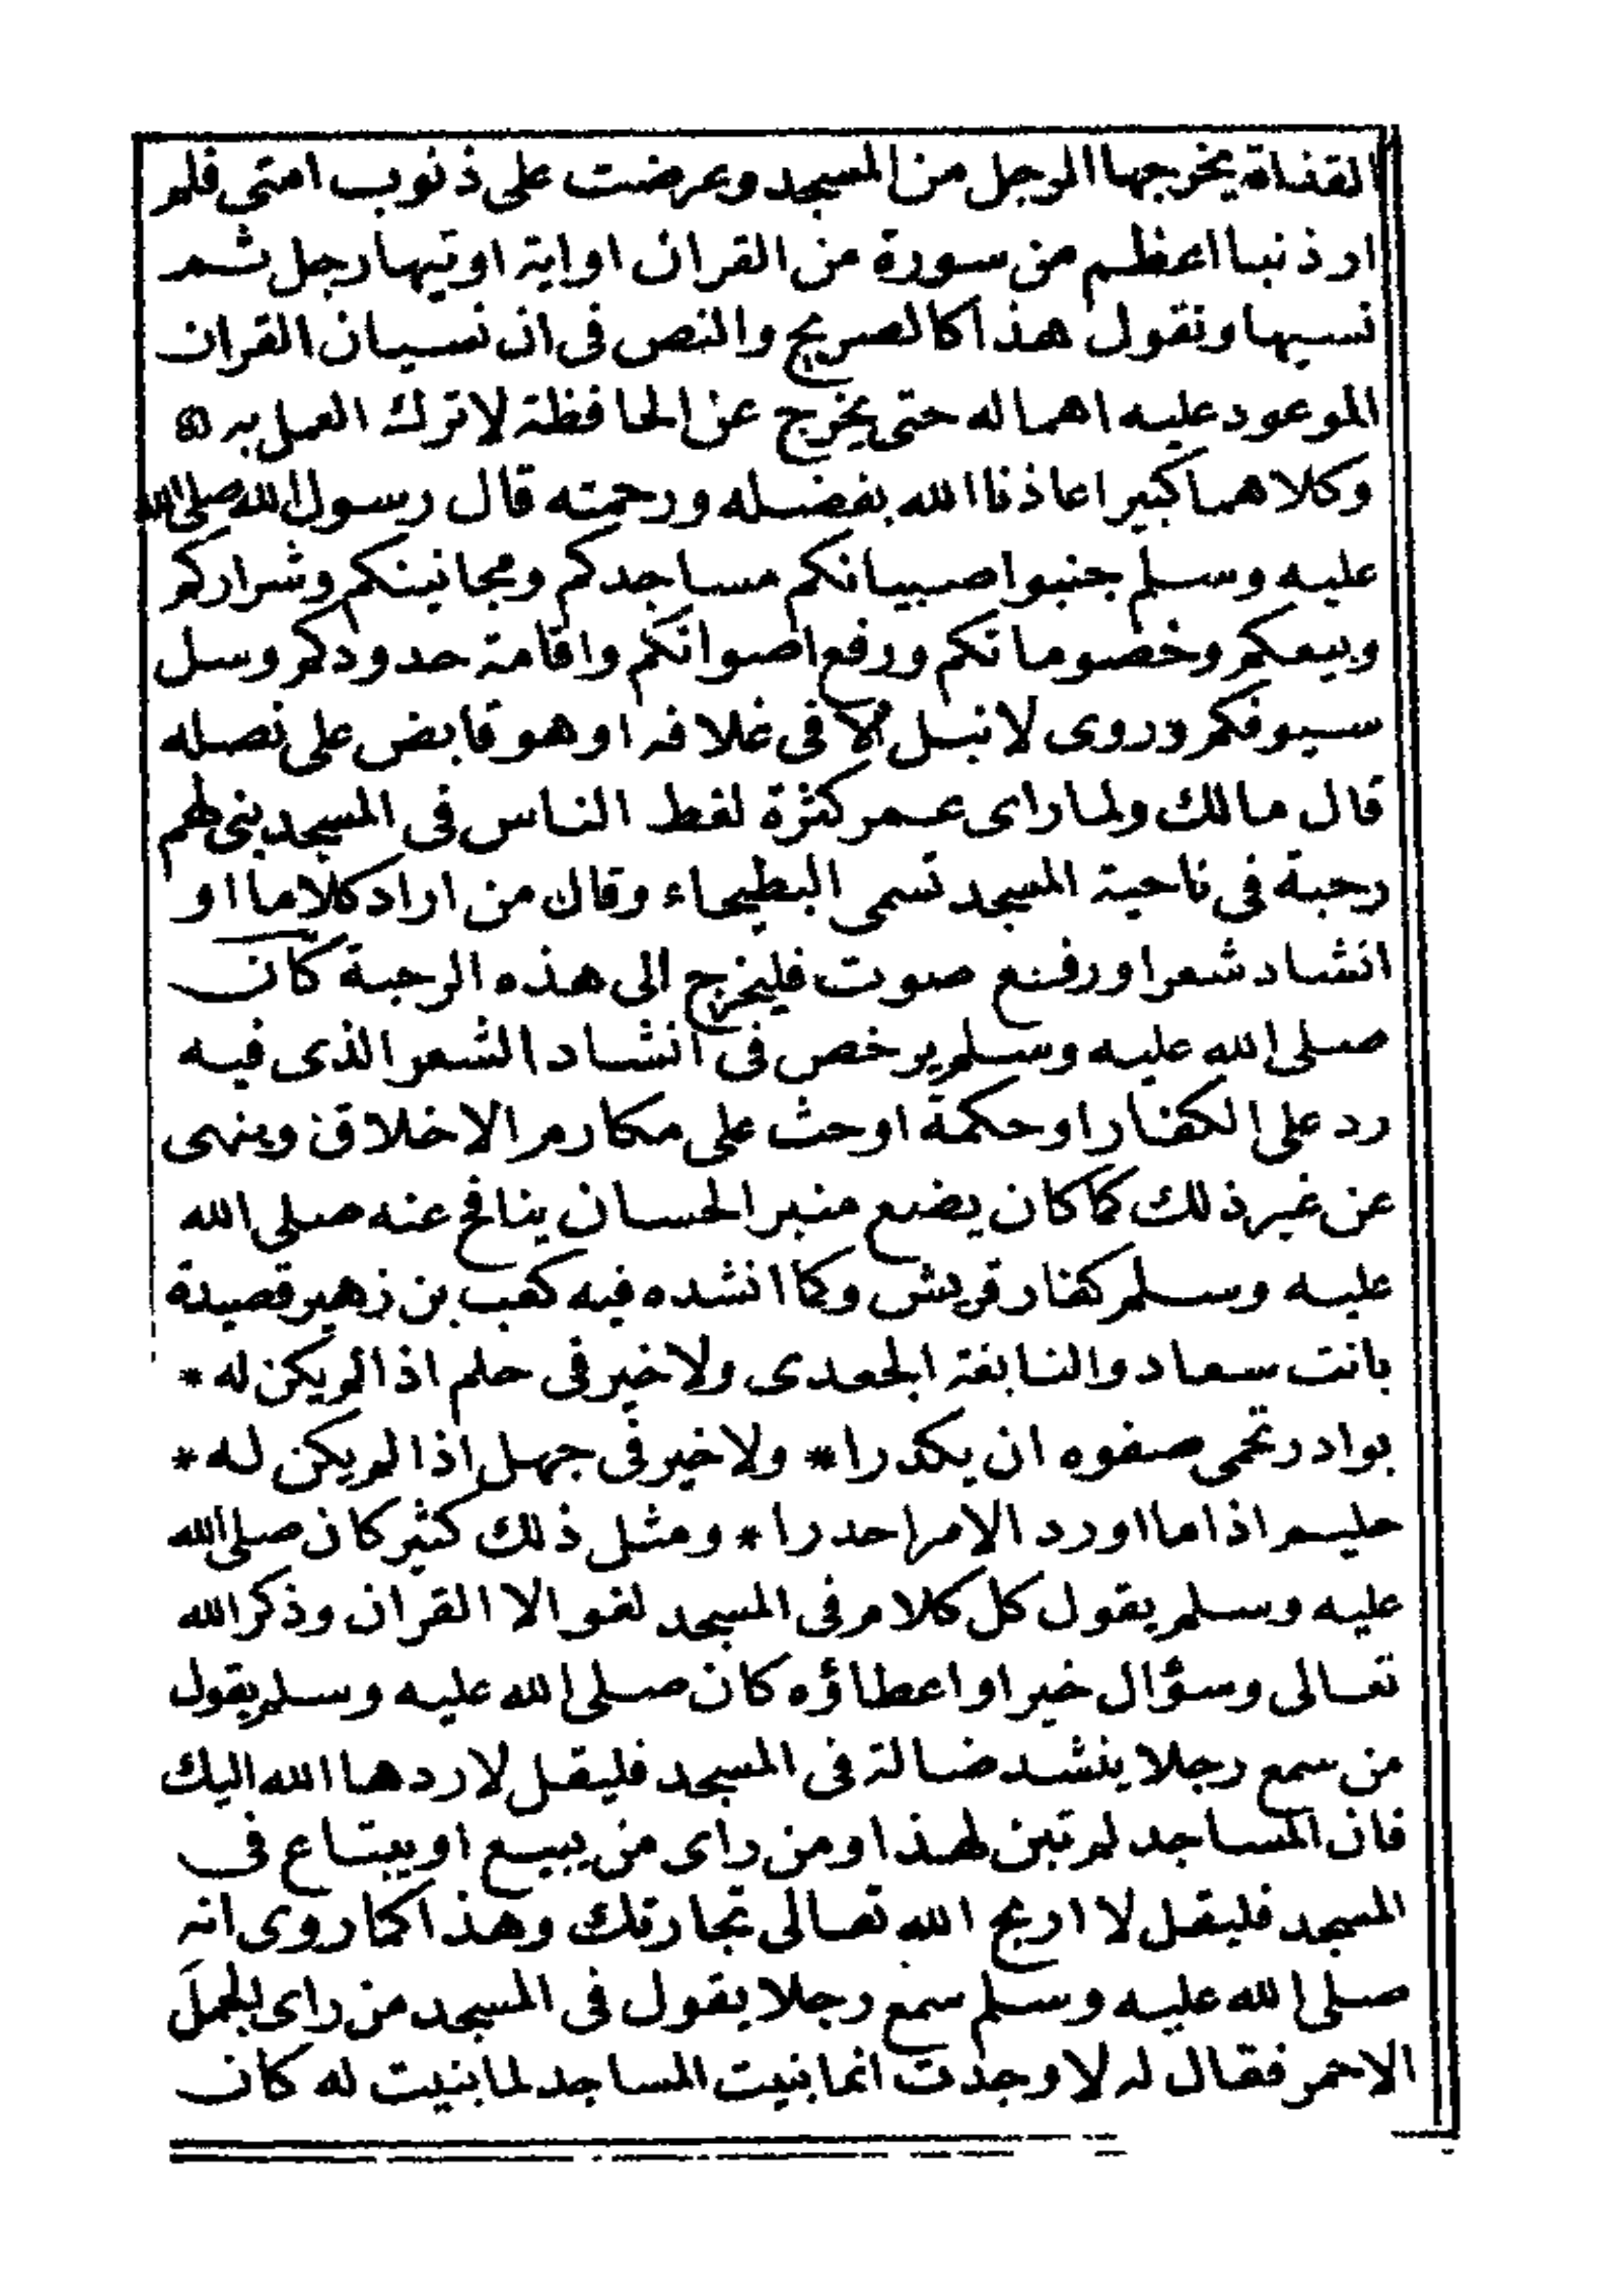 القذاة يخرجها الرجل من المسجد وعرضت على ذنوب امتى فلم
ار ذنبا اعظم من سورة من القران او اية اوتيها رجل ثم
نسيها ونقول هذا كالصريح والنص فى ان نسيان القران
الموعود عليه اهماله حتى يخرج عن الحافظة لا ترك العمل به
وكلاهما كبير اعاذنا الله بفضله ورحمته قال رسول الله صلى الله
عليه وسلم جنبوا صبيانكم مساجدكم ومجانينكم وشراركم
وبيعكم وخصوماتكم ورفع اصواتكم واقامة حدودكم وسل
سيوفكم وروى لا تسل الا فى غلافه او هو قابض على نصله
قال مالك ولما راى عمر كثرة لغط الناس فى المسجد بنى لهم
رحبة فى ناحية المسجد تسمى البطيحاء وقال من اراد كلاما او
انشاد شعرا ورفع صوت فليخرج الى هذه الرحبة كان
صلى الله عليه وسلم يرخص فى انشاد الشعر الذى فيه
رد على الكفار او حكمة او حث على مكارم الاخلاق وينهى
عن غير ذلك كما كان يضع منبر الحسان ينافح عنه صلى الله
عليه وسلم كفار قريش وكما انشده فيه كعب بن زهير قصيدة
بانت سعاد والنابغة الجعدى ولا خير فى حلم اذا لم يكن له *
بوادر تحمى صفوه ان يكدرا * ولا خير فى جهل اذا لم يكن له *
حليم اذا ما اورد الامر احدرا * ومثل ذلك كثير كان صلى الله
عليه وسلم يقول كل كلام فى المسجد لغو الا القران وذكر الله
تعالى وسؤال خير او اعطاؤه كان صلى الله عليه وسلم يقول
من سمع رجلا ينشد ضالة فى المسجد فليقل لا ردها الله اليك
فان المساجد لم تبن لهذا ومن راى من يبيع او يبتاع فى
المسجد فليقل لا اربح الله تعالى تجارتك وهذا كما روى انه
صلى الله عليه وسلم سمع رجلا يقول فى المسجد من راى لجمل
الاحمر فقال له لا وجدت انما بنيت المساجد لما بنيت له كان